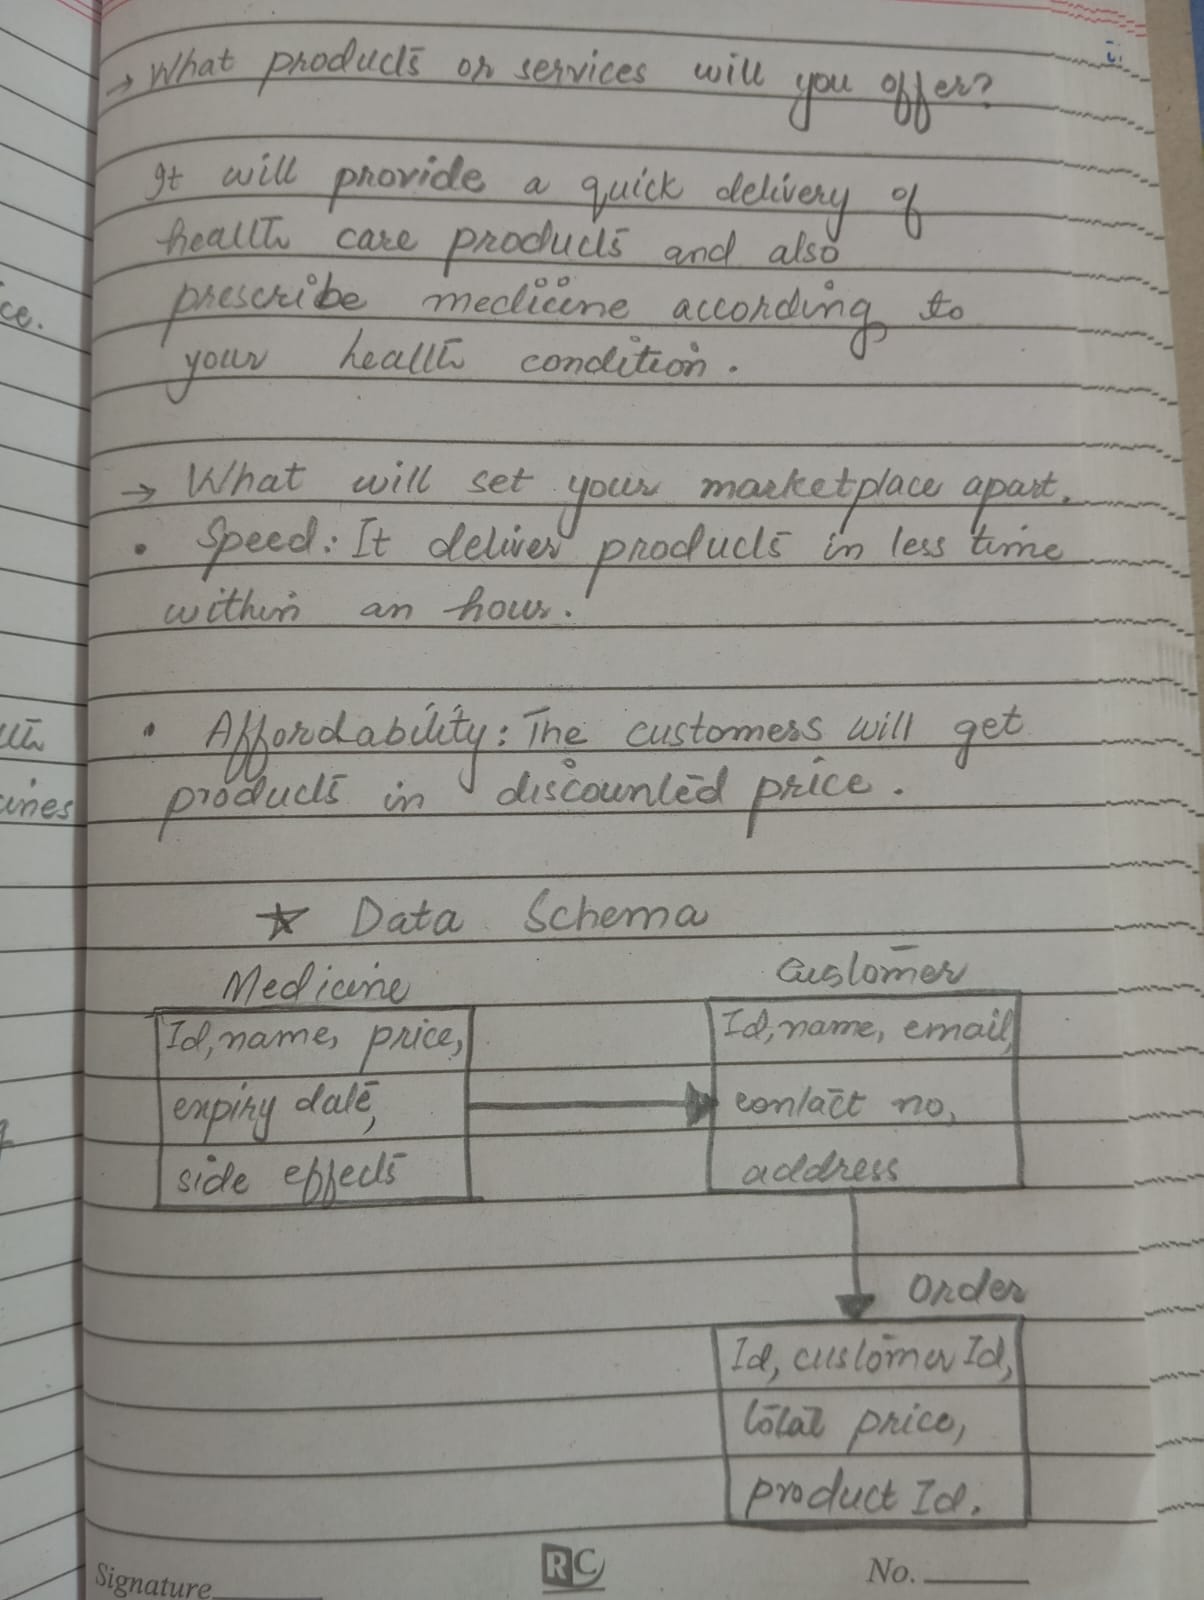 → What products or services will you offer?
It will provide a quick delivery of
health care products and also
prescribe medicine according to
your health condition.
→ What will set your marketplace apart.
• Speed: It deliver products in less time
within an hour.
• Affordability: The customers will get
products in discounted price.
★ Data Schema
Medicine
Id, name, price,
expiry date,
side effects
Customer
Id, name, email,
contact no,
address
Order
Id, customer Id,
total price,
product Id.
Signature
RC
No.
ce.
ines